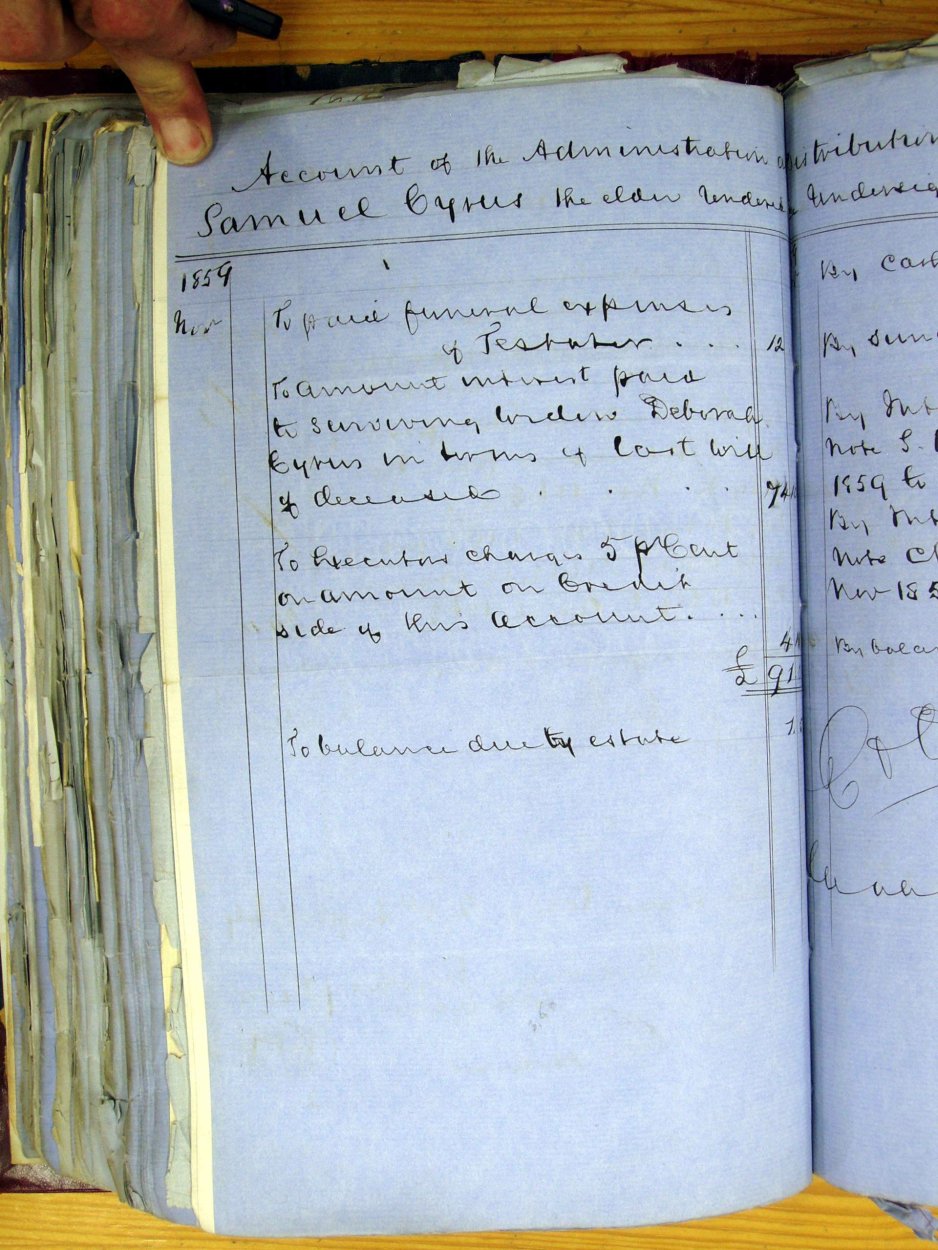 Account of the Administration
Samuel Cyrus the elder
1859
Nov
To paid funeral expenses
of Testator . . . . 12
To amount interest paid
to surviving widow Deborah
Cyrus in terms of last will
of deceased . . . . 74
To Executors charges 5 p Cent
on amount on Credit
side of this account. . . .
4
£ 91
To balance due by estate
distribution
By Cash
By
By
Note S.
1859 to
By
Note
Nov 185
By